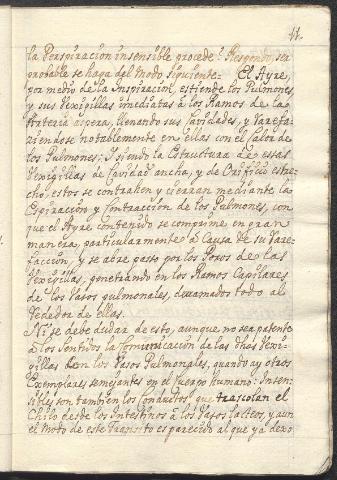 11.
la Perspiracion insensible procede? Respondo, ser
probable se haga del Modo siguiente. El Ayre,
por medio de la Inspiracion, estiende los Pulmones
y sus Vexigillas imediatas à los Ramos de la
Arteria aspera, llenando sus Cavidades, y Rarefa-
ciendose notablemente en ellas con el Calor de
los Pulmones; I siendo la Estructura de essas
Vexigillas de Cavidad ancha, y de Orificio estre-
cho, estos se contrahen y cierran mediante la
Espiracion y Contraccion de los Pulmones, con
que el Ayre contenido se comprime, en gran
manera, particularmente à Causa de su Rare-
faccion, y se abre passo por los Poros de las
Vexigillas, penetrando en los Ramos Capilares
de los Vasos pulmonales, derramados todo al
Rededor de ellas.
Ni se debe dudar de esto, aunque no sea patente
à los Sentidos la Comunicacion de las dhas Vexi-
gillas con los Vasos Pulmonales, quando ay otros
Exemplares semejantes en el Cuerpo humano: Insen-
sibles son tambien los Conductos que trascolan el
Chilo desde los Intestinos à los Vasos lacteos, y aun
el Modo de este Transito es parecido al que ya dexo